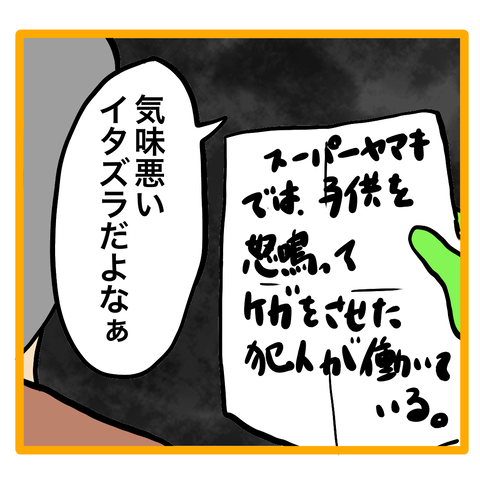 スーパーヤマキ
では、子供を
怒鳴って
ケガをさせた
犯人が働いて
いる。
気味悪い
イタズラだよなぁ